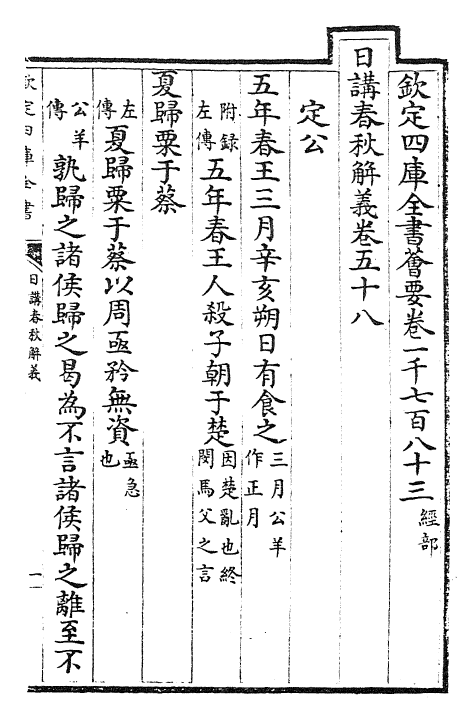 欽定四庫全書薈要卷一千七百八十三 經部
日講春秋解義卷五十八
定公
五年春王三月辛亥朔日有食之 三月公羊作正月
附録左傳 五年春王人殺子朝于楚 因楚亂也終閔馬父之言
夏歸粟于蔡
左傳 夏歸粟于蔡以周亟矜無資 亟急也
公羊傳 孰歸之諸侯歸之曷為不言諸侯歸之離至不
欽定四庫全書
日講春秋解義
一